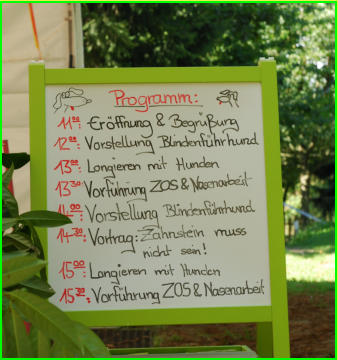 Programm:
11⁰⁰: Eröffnung & Begrüßung
12⁰⁰: Vorstellung Blindenführhund
13⁰⁰: Longieren mit Hunden
13³⁰: Vorführung ZOS & Nasenarbeit
14⁰⁰: Vorstellung Blindenführhund
14³⁰: Vortrag: Zahnstein muss
nicht sein!
15⁰⁰: Longieren mit Hunden
15³⁰: Vorführung ZOS & Nasenarbeit